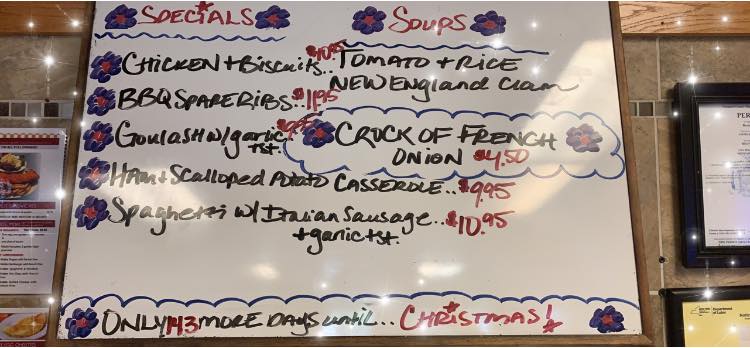 SPECIALS
CHICKEN + BISCUITS.. $10.95
BBQ SPARE RIBS.. $11.95
GOULASH W/ garlic $9.95
tst.
HAM + Scalloped Potato CASSEROLE.. $9.95
Spaghetti w/ Italian Sausage.. $10.95
+ garlic tst.
SOUPS
TOMATO + RICE
NEW ENGLAND Clam
CROCK OF FRENCH
ONION $4.50
ONLY 143 MORE DAYS until... CHRISTMAS!
Department
of Labor